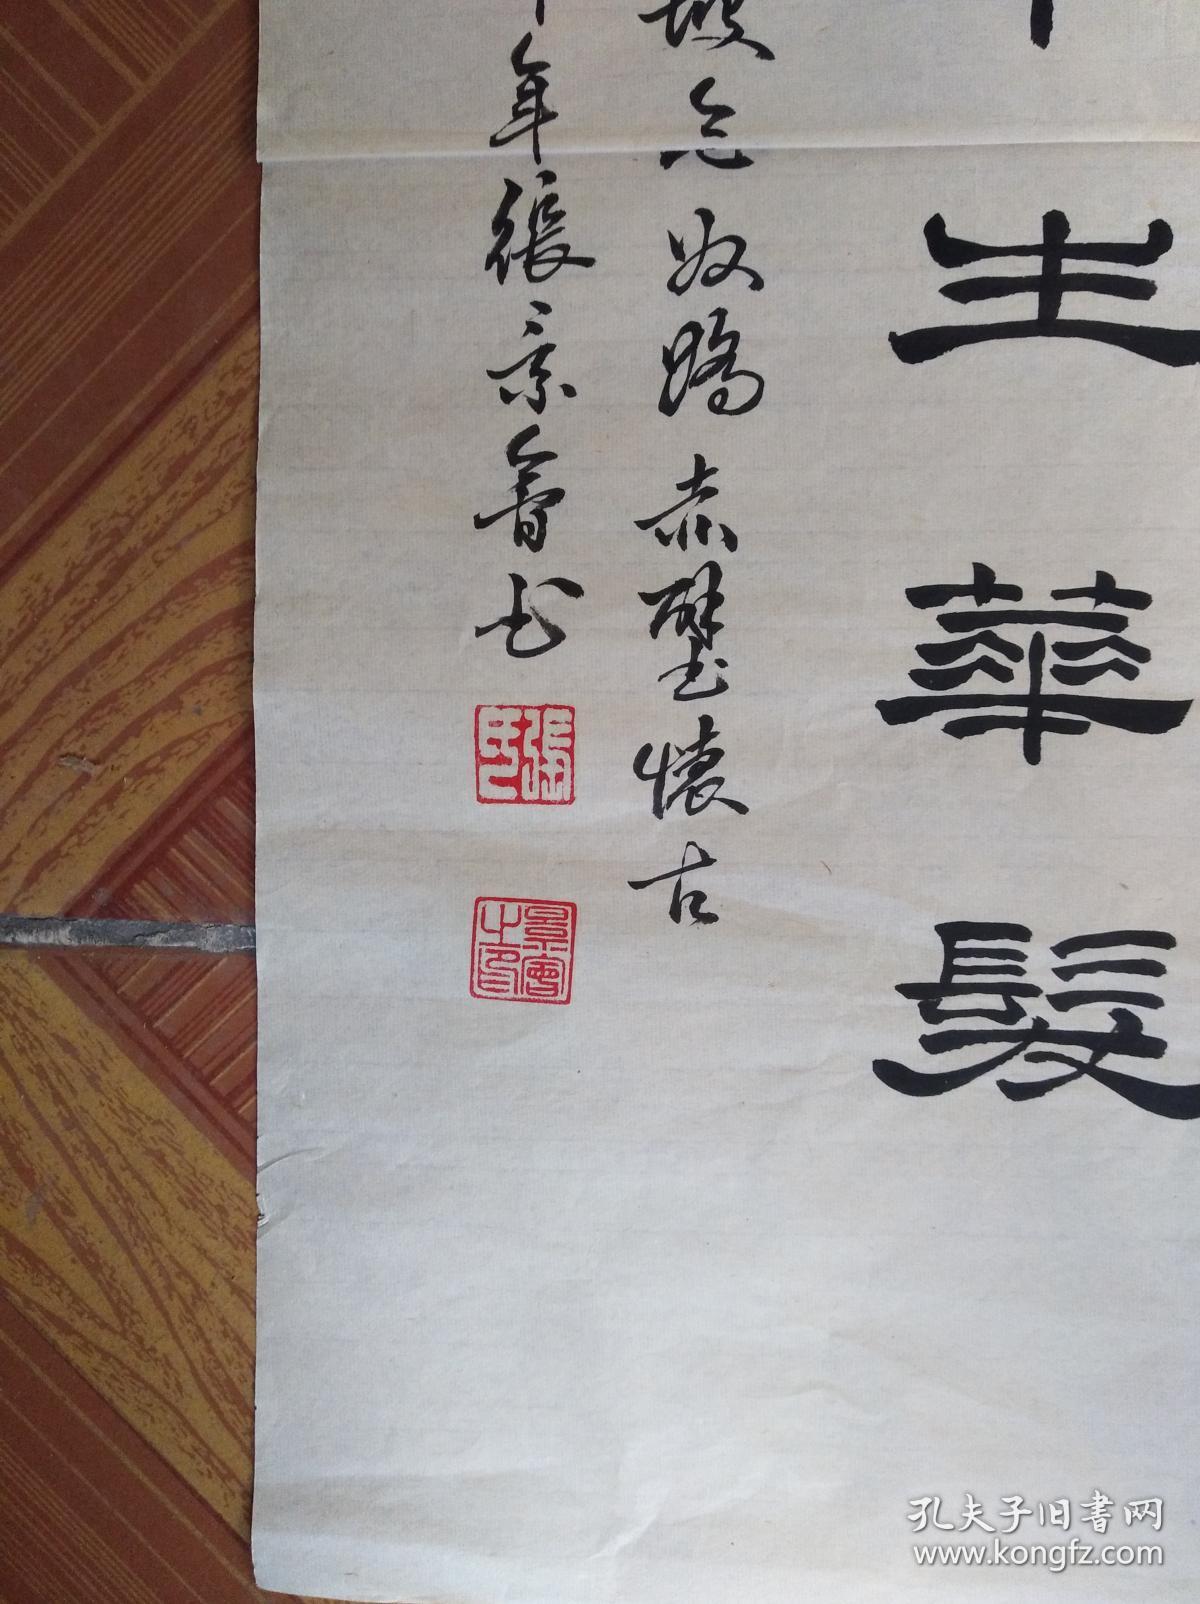 生華髮
坡念奴嬌赤壁懷古
年張景會书
張
景會之印
孔夫子旧书网
www.kongfz.com